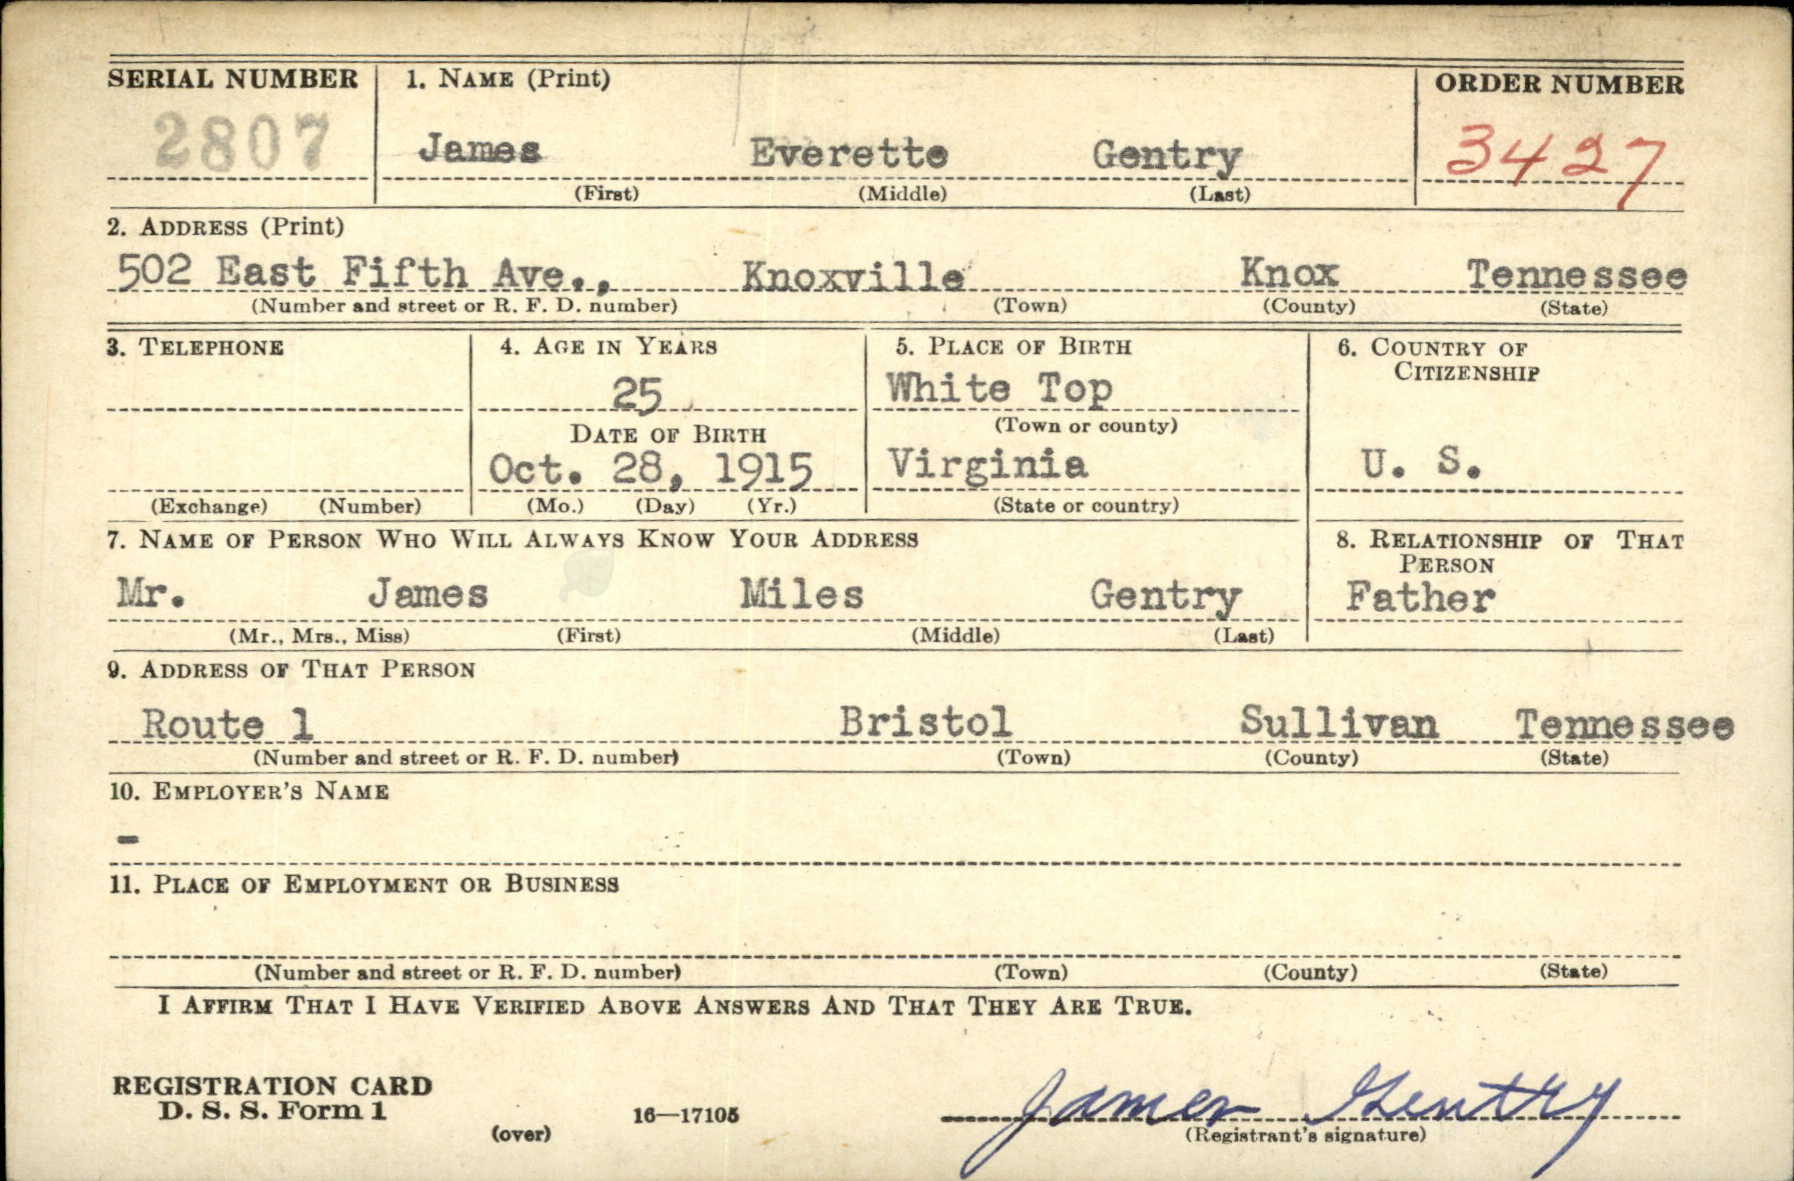 SERIAL NUMBER 1. NAME (Print) ORDER NUMBER
2807 James Everette Gentry 3427
(First) (Middle) (Last)
2. ADDRESS (Print)
502 East Fifth Ave., Knoxville Knox Tennessee
(Number and street or R. F. D. number) (Town) (County) (State)
3. TELEPHONE 4. AGE IN YEARS 5. PLACE OF BIRTH 6. COUNTRY OF
CITIZENSHIP
25 White Top
DATE OF BIRTH (Town or county)
Oct. 28, 1915 Virginia U. S.
(Exchange) (Number) (Mo.) (Day) (Yr.) (State or country)
7. NAME OF PERSON WHO WILL ALWAYS KNOW YOUR ADDRESS 8. RELATIONSHIP OF THAT
PERSON
Mr. James Miles Gentry Father
(Mr., Mrs., Miss) (First) (Middle) (Last)
9. ADDRESS OF THAT PERSON
Route 1 Bristol Sullivan Tennessee
(Number and street or R. F. D. number) (Town) (County) (State)
10. EMPLOYER'S NAME
-
11. PLACE OF EMPLOYMENT OR BUSINESS
(Number and street or R. F. D. number) (Town) (County) (State)
I AFFIRM THAT I HAVE VERIFIED ABOVE ANSWERS AND THAT THEY ARE TRUE.
REGISTRATION CARD
D. S. S. Form 1 16—17105 James Gentry
(over) (Registrant's signature)